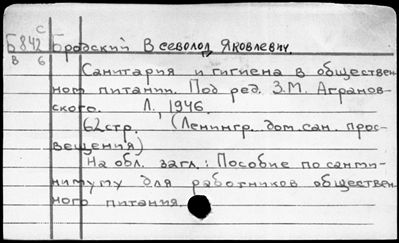 С
Б 842 Бродский Всеволод Яковлевич.
В 6
Санитария и гигиена в обществен-
ном питании. Под ред. З.М. Агранов-
ского. Л., 1946.
62стр. (Ленингр. дом сан. прос-
вещения)
На обл. загл.: Пособие по санми-
нимуму для работников обществен-
ного питания.